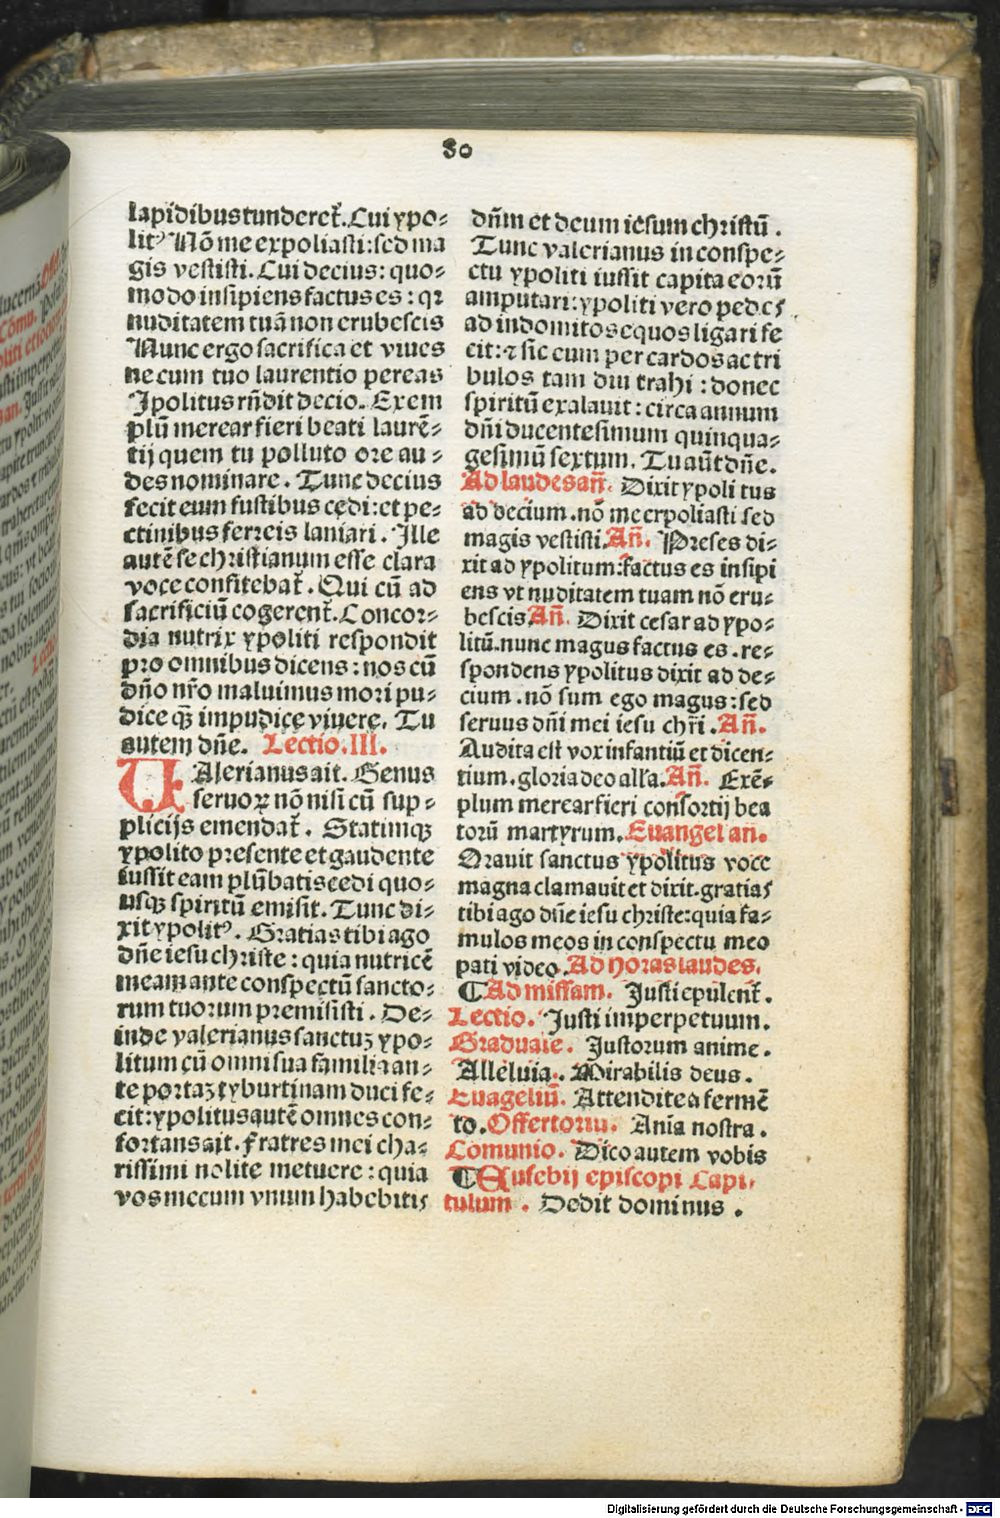 80
lapidibus tunderet̃. Cui ypo⸗
litꝰ Nō me expoliasti: sed ma
gis vestisti. Cui decius: quo⸗
modo insipiens factus es: qꝛ
nuditatem tuā non erubescis
Nunc ergo sacrifica et viues
ne cum tuo laurentio pereas
Ipolitus rñdit decio. Exem
plū merear fieri beati laurē⸗
tij quem tu polluto ore au⸗
des nominare. Tunc decius
fecit eum fustibus cędi: et pe⸗
ctinibus ferreis laniari. Ille
autē se christianum esse clara
voce confitebat̃. Qui cū ad
sacrificiū cogerent̃. Concor⸗
dia nutrix ypoliti respondit
pro omnibus dicens: nos cū
dño nr̃o maluimus mori pu⸗
dice qꝫ impudice viuere. Tu
autem dñe. Lectio. III.
VAlerianus ait. Genus
seruoꝝ nō nisi cū sup⸗
plicijs emendat̃. Statimqꝫ
ypolito presente et gaudente
iussit eam plūbatis cedi quo⸗
usqꝫ spiritū emisit. Tunc di⸗
xit ypolitꝰ. Gratias tibi ago
dñe iesu christe: quia nutricē
meam ante conspectū sancto⸗
rum tuorum premisisti. De⸗
inde valerianus sanctuꝫ ypo⸗
litum cū omni sua familia an⸗
te portaꝫ tyburtinam duci fe⸗
cit: ypolitus autē omnes con⸗
fortans ait. Fratres mei cha⸗
rissimi nolite metuere: quia
vos mecum vnum habebitis
dñm et deum iesum christū.
Tunc valerianus in conspe⸗
ctu ypoliti iussit capita eorū
amputari: ypoliti vero pedes
ad indomitos equos ligari fe
cit: ⁊ sic cum per cardos ac tri
bulos tam diu trahi: donec
spiritū exalauit: circa annum
dñi ducentesimum quinqua⸗
gesimū sextum. Tu aūt dñe.
Ad laudes añ. Dixit ypoli tus
ad decium. nō me expoliasti sed
magis vestisti. Añ. Preses di⸗
xit ad ypolitum: factus es insipi
ens vt nuditatem tuam nō eru⸗
bescis Añ. Dixit cesar ad ypo⸗
litū. nunc magus factus es. re⸗
spondens ypolitus dixit ad de⸗
cium. nō sum ego magus: sed
seruus dñi mei iesu chr̃i. Añ.
Audita est vox infantiū et dicen⸗
tium. gloria deo alľa. Añ. Exē⸗
plum merear fieri consortij bea
torū martyrum. Euangel añ.
Orauit sanctus ypolitus voce
magna clamauit et dixit. gratias
tibi ago dñe iesu christe: quia fa⸗
mulos meos in conspectu meo
pati video. Ad horas laudes.
¶ Ad missam. Justi epulent̃.
Lectio. Justi imperpetuum.
Graduale. Justorum anime.
Alleluia. Mirabilis deus.
Euageliū. Attendite a fermē
to. Offertoriu. Ania nostra.
Comunio. Dico autem vobis
¶ Eusebij episcopi Capi⸗
tulum. Dedit dominus.
Digitalisierung gefördert durch die Deutsche Forschungsgemeinschaft - DFG